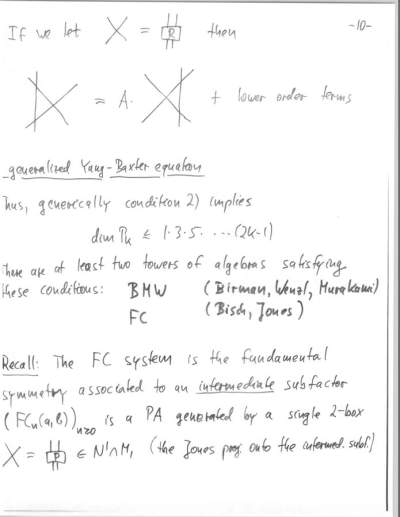 -10-
If we let X = R then
= A. + lower order terms
generalized Yang-Baxter equation
Thus, generically condition 2) implies
dim P_k ≤ 1·3·5· ... ·(2k-1)
There are at least two towers of algebras satisfying
these conditions: BMW (Birman, Wenzl, Murakami)
FC (Bisch, Jones)
Recall: The FC system is the fundamental
symmetry associated to an intermediate subfactor
(FC_n(a,b))_n≥0 is a PA generated by a single 2-box
X = P ∈ N'∩M_1 (the Jones proj. onto the intermed. subf.)